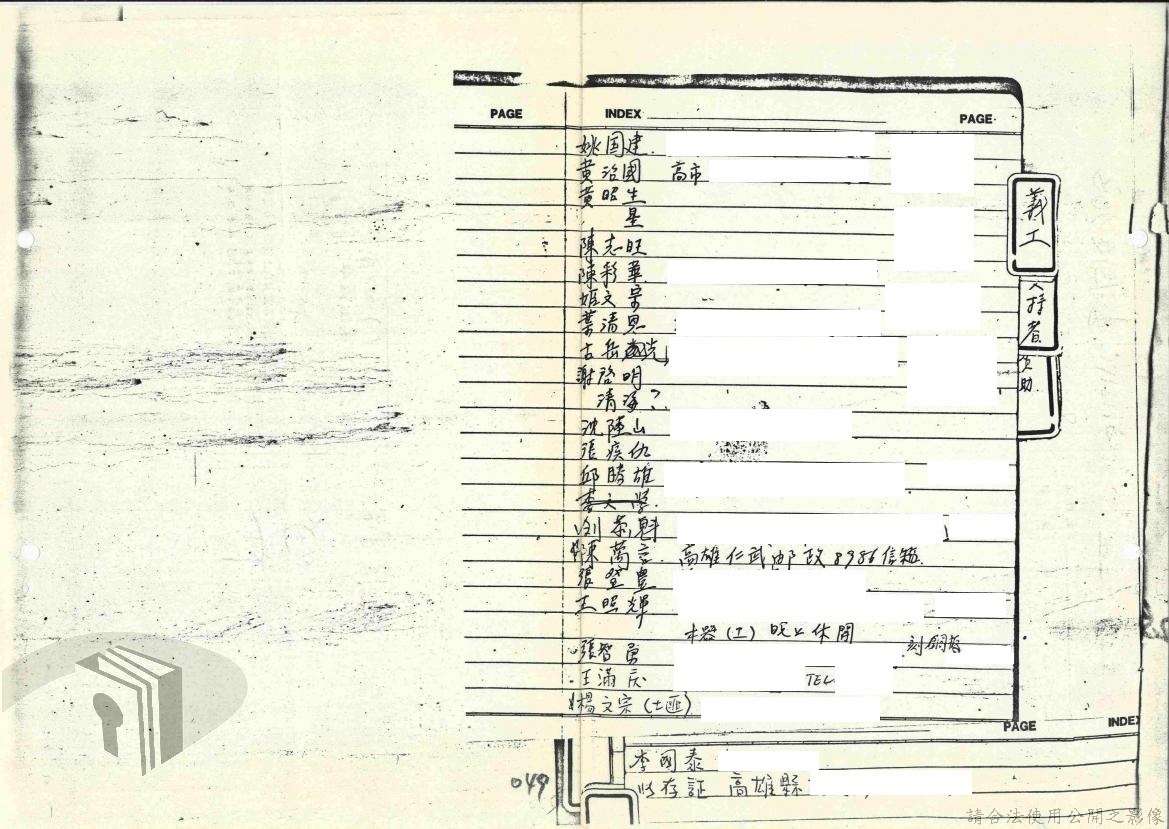 PAGE INDEX PAGE
姚国建
黄治國 高市
黄昭生
星
陳志旺
陳彩華
姬文宗
葉清恩
古岳
謝啓明
清海?
沈陸山
張疾仇
邱勝雄
李文学
刘荣魁
陳萬言 高雄仁武郵政8986信箱
張登豊
王照輝
木器(工) 晚上休閒
張智勇
王滿庆 TEL
楊文宗(土匪)
義工
支持者
負助
PAGE INDEX
李國泰
以存証 高雄縣
049
請合法使用公開之影像